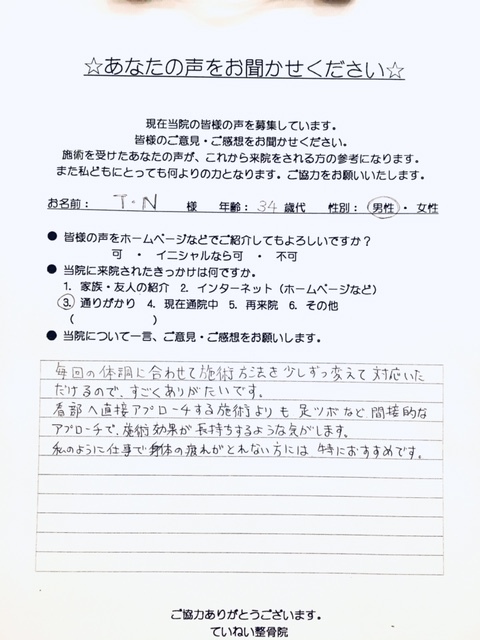 ☆あなたの声をお聞かせください☆
現在当院の皆様の声を募集しています。
皆様のご意見・ご感想をお聞かせください。
施術を受けたあなたの声が、これから来院をされる方の参考になります。
また私どもにとっても何よりの力となります。ご協力をお願いいたします。
お名前： T・N 様 年齢：34歳代 性別：男性・女性
● 皆様の声をホームページなどでご紹介してもよろしいですか？
可 ・ イニシャルなら可 ・ 不可
● 当院に来院されたきっかけは何ですか。
1. 家族・友人の紹介 2. インターネット（ホームページなど）
3. 通りがかり 4. 現在通院中 5. 再来院 6. その他
( )
● 当院について一言、ご意見・ご感想をお願いします。
毎回の体調に合わせて施術方法を少しずつ変えて対応いた
だけるので、すごくありがたいです。
患部へ直接アプローチする施術よりも足ツボなど間接的な
アプローチで、施術効果が長持ちするような気がします。
私のように仕事で身体の疲れがとれない方には特におすすめです。
ご協力ありがとうございます。
ていねい整骨院